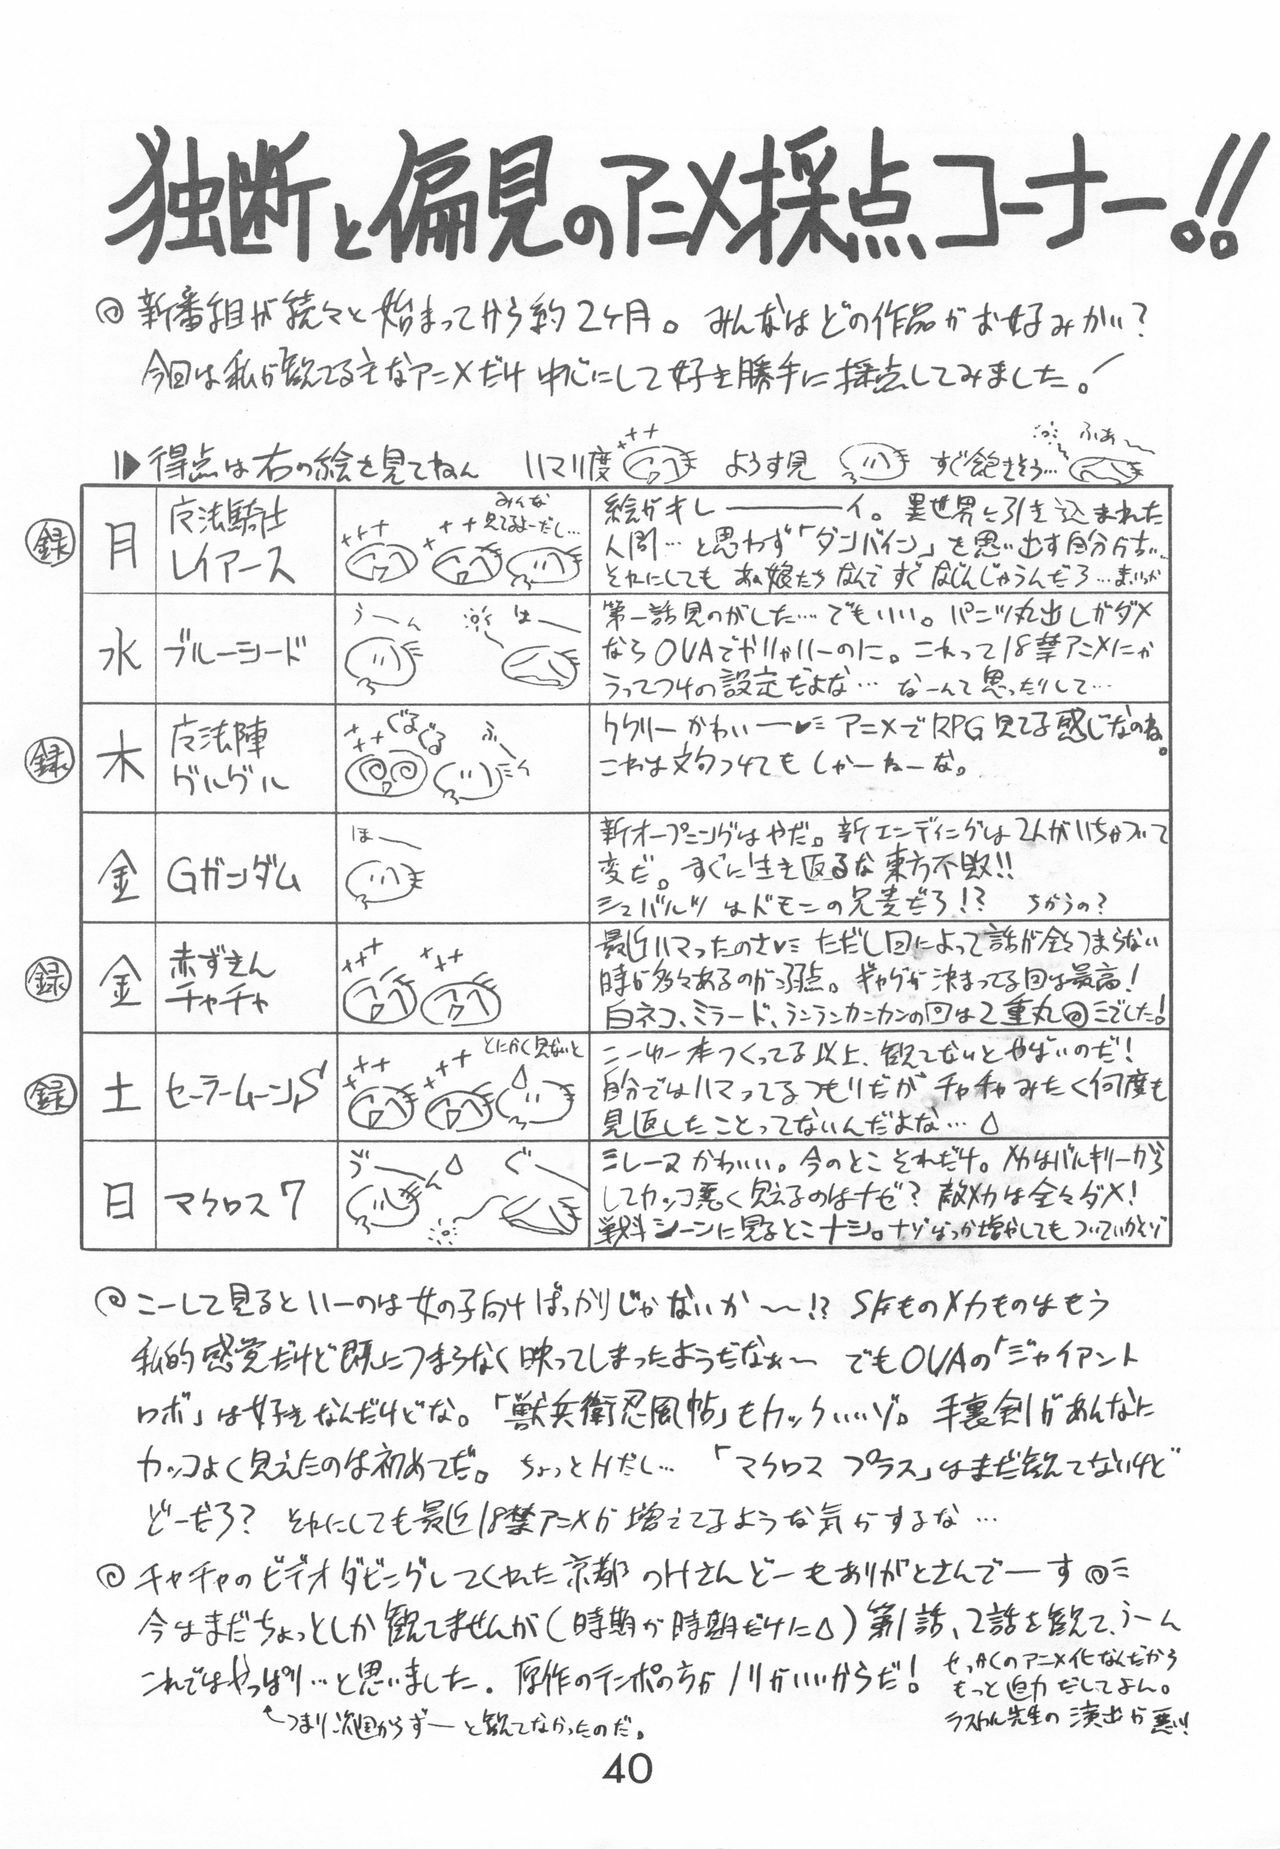 独断と偏見のアニメ採点コーナー!!
◎ 新番組が続々と始まってから約2ヶ月。みんなはどの作品がお好みかい?
今回は私が観てる主なアニメだけ中心にして好き勝手に採点してみました!
▶得点は右の絵を見てねん ハマリ度 ようす見 すぐ飽きそう… ふあ〜
録 月 魔法騎士
レイアース
みんな
見てるよーだし…
絵がキレ――――イ。異世界に引き込まれた
人間…と思わず「ダンバイン」を思い出す自分が古い…
それにしてもあの娘たちなんですぐなじんじゃうんだろ…まいっか
水 ブルーシード
う〜ん は――
第一話見のがした…でもいい。パンツ丸出しがダメ
ならOVAでやりゃいーのに。これって18禁アニメにか
うってつけの設定だよな… なーんて思ったりして…
録 木 魔法陣
グルグル
ぐるぐる ふ〜ん
ククリーかわいー♥ アニメでRPG見てる感じなのね。
これは文句つけてもしゃーねーな。
金 Gガンダム
ほ――
新オープニングはやだ。新エンディングは2人がいちゃついて
変だ。すぐに生き返るな東方不敗!!
シュバルツはドモンの兄貴だろ!? ちがうの?
録 金 赤ずきん
チャチャ
最近ハマったのさ♥ ただし回によって話が全々つまらない
時が多々あるのが弱点。ギャグが決まってる回は最高!
白ネコ、ミラード、ランランカンカンの回は2重丸◎でした!
録 土 セーラームーンS
とにかく見ないと
こーゆー本つくってる以上、観てないとやばいのだ!
自分ではハマってるつもりだがチャチャみたく何度も
見返したことってないんだよな…
日 マクロス7
う゛―― ぐ――
ミレーヌかわいい。今のとこそれだけ。メカはバルキリーからし
てカッコ悪く見えるのはナゼ? 敵メカは全々ダメ!
戦斗シーンに見るとこナシ。ナゾばっか増やしてもついていかんぞ
◎ こーして見るといーのは女の子向けばっかりじゃないか〜!? SFものメカものはもう
私的感覚だけど既につまらなく映ってしまったようだなぁ〜 でもOVAの「ジャイアント
ロボ」は好きなんだけどな。「獣兵衛忍風帖」もカックいいゾ。手裏剣があんなに
カッコよく見えたのは初めてだ。ちょっとHだし… 「マクロスプラス」はまだ観てないけど
どーだろ? それにしても最近18禁アニメが増えてるような気がするな…
◎ チャチャのビデオダビングしてくれた京都のHさんどーもありがとさんでーす◎
今はまだちょっとしか観てませんが(時期が時期だけに)第1話、2話を観て、うーん
これではやっぱり…と思いました。原作のテンポの方がノリがいいからだ!
せっかくのアニメ化なんだから
もっと迫力だしてよん。
ラスカル先生の演出が悪い!
つまり次回からずーっと観てなかったのだ。
40